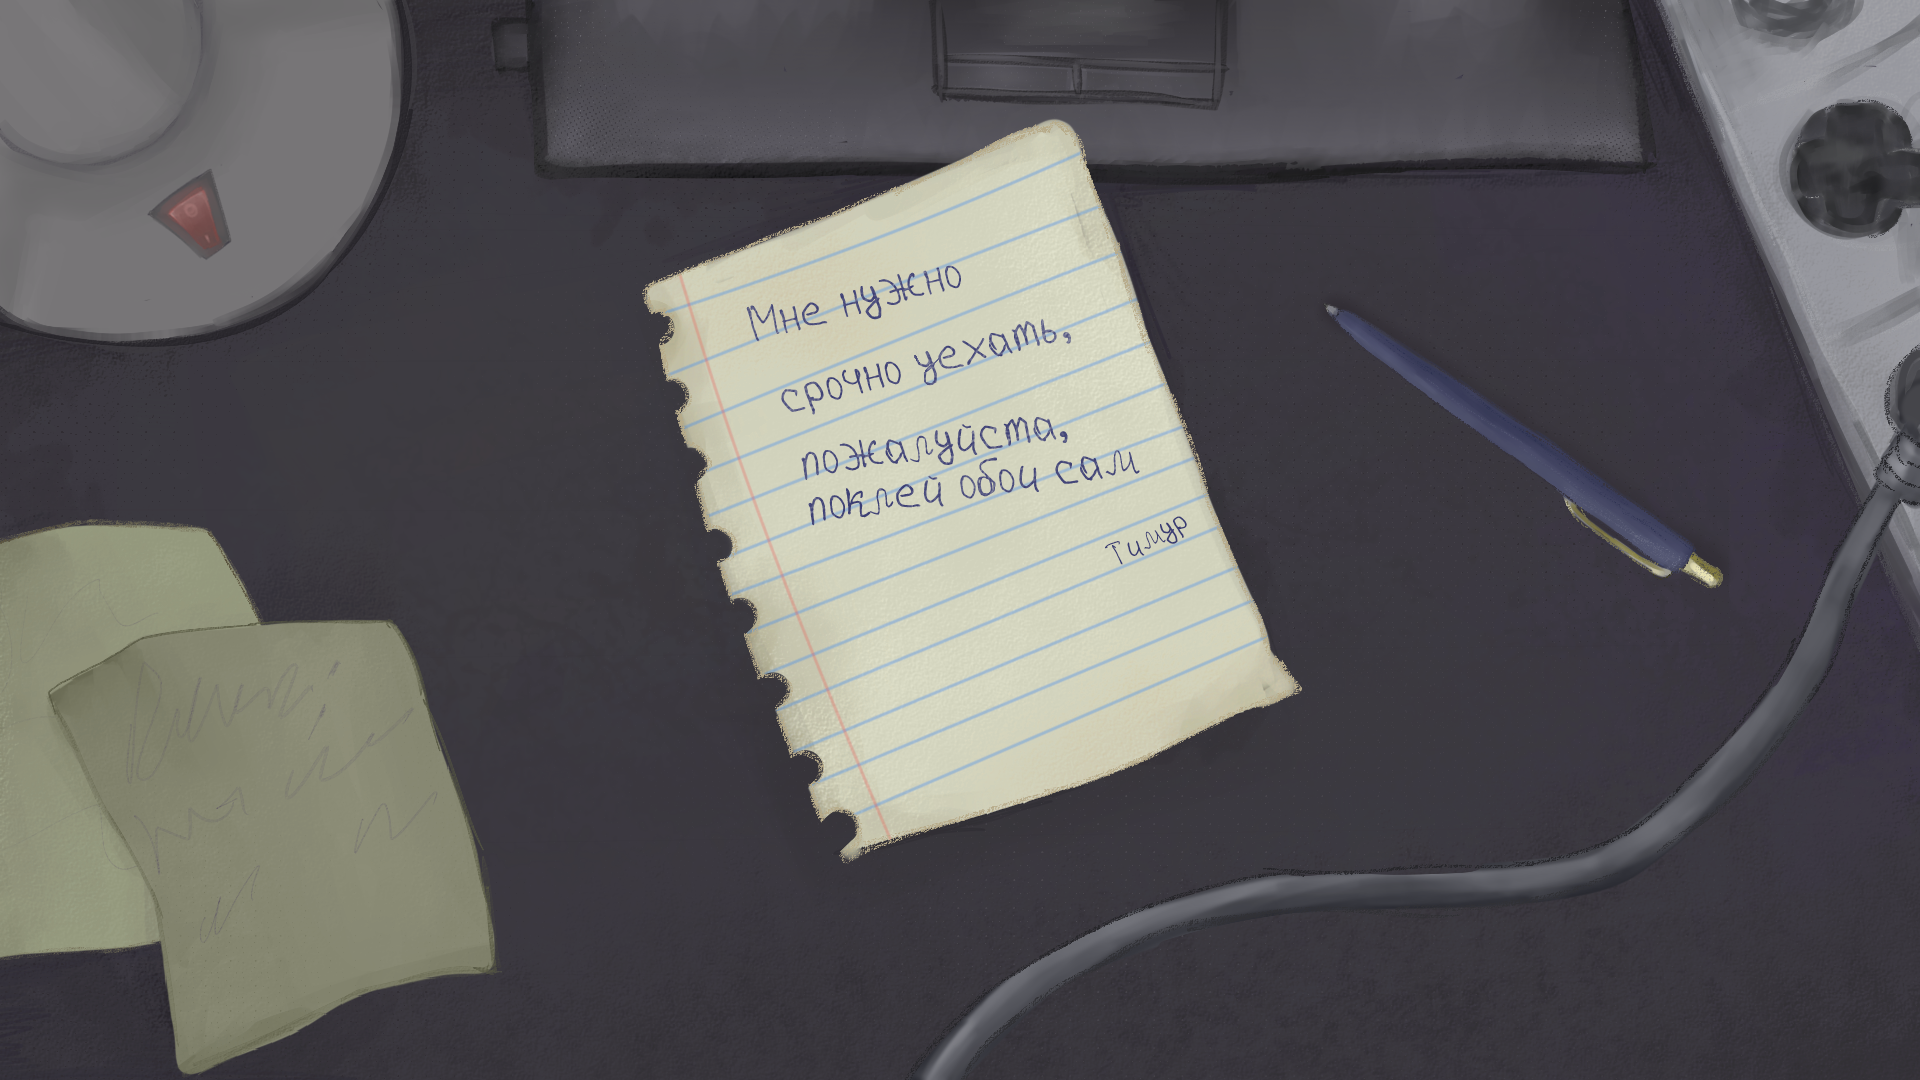 Мне нужно
срочно уехать,
пожалуйста,
поклей обои сам
Тимур